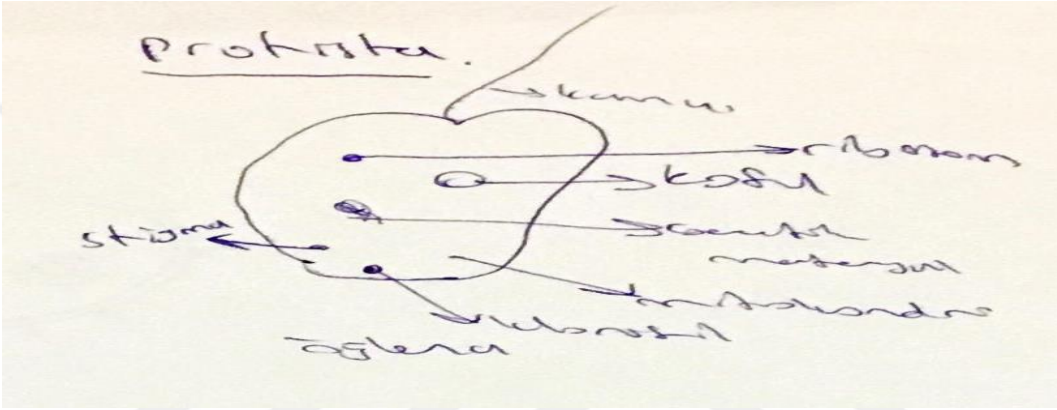 Protista.
kamçı
ribozom
koful
stigma
genetik
materyal
mitokondri
kloroplast
öglena